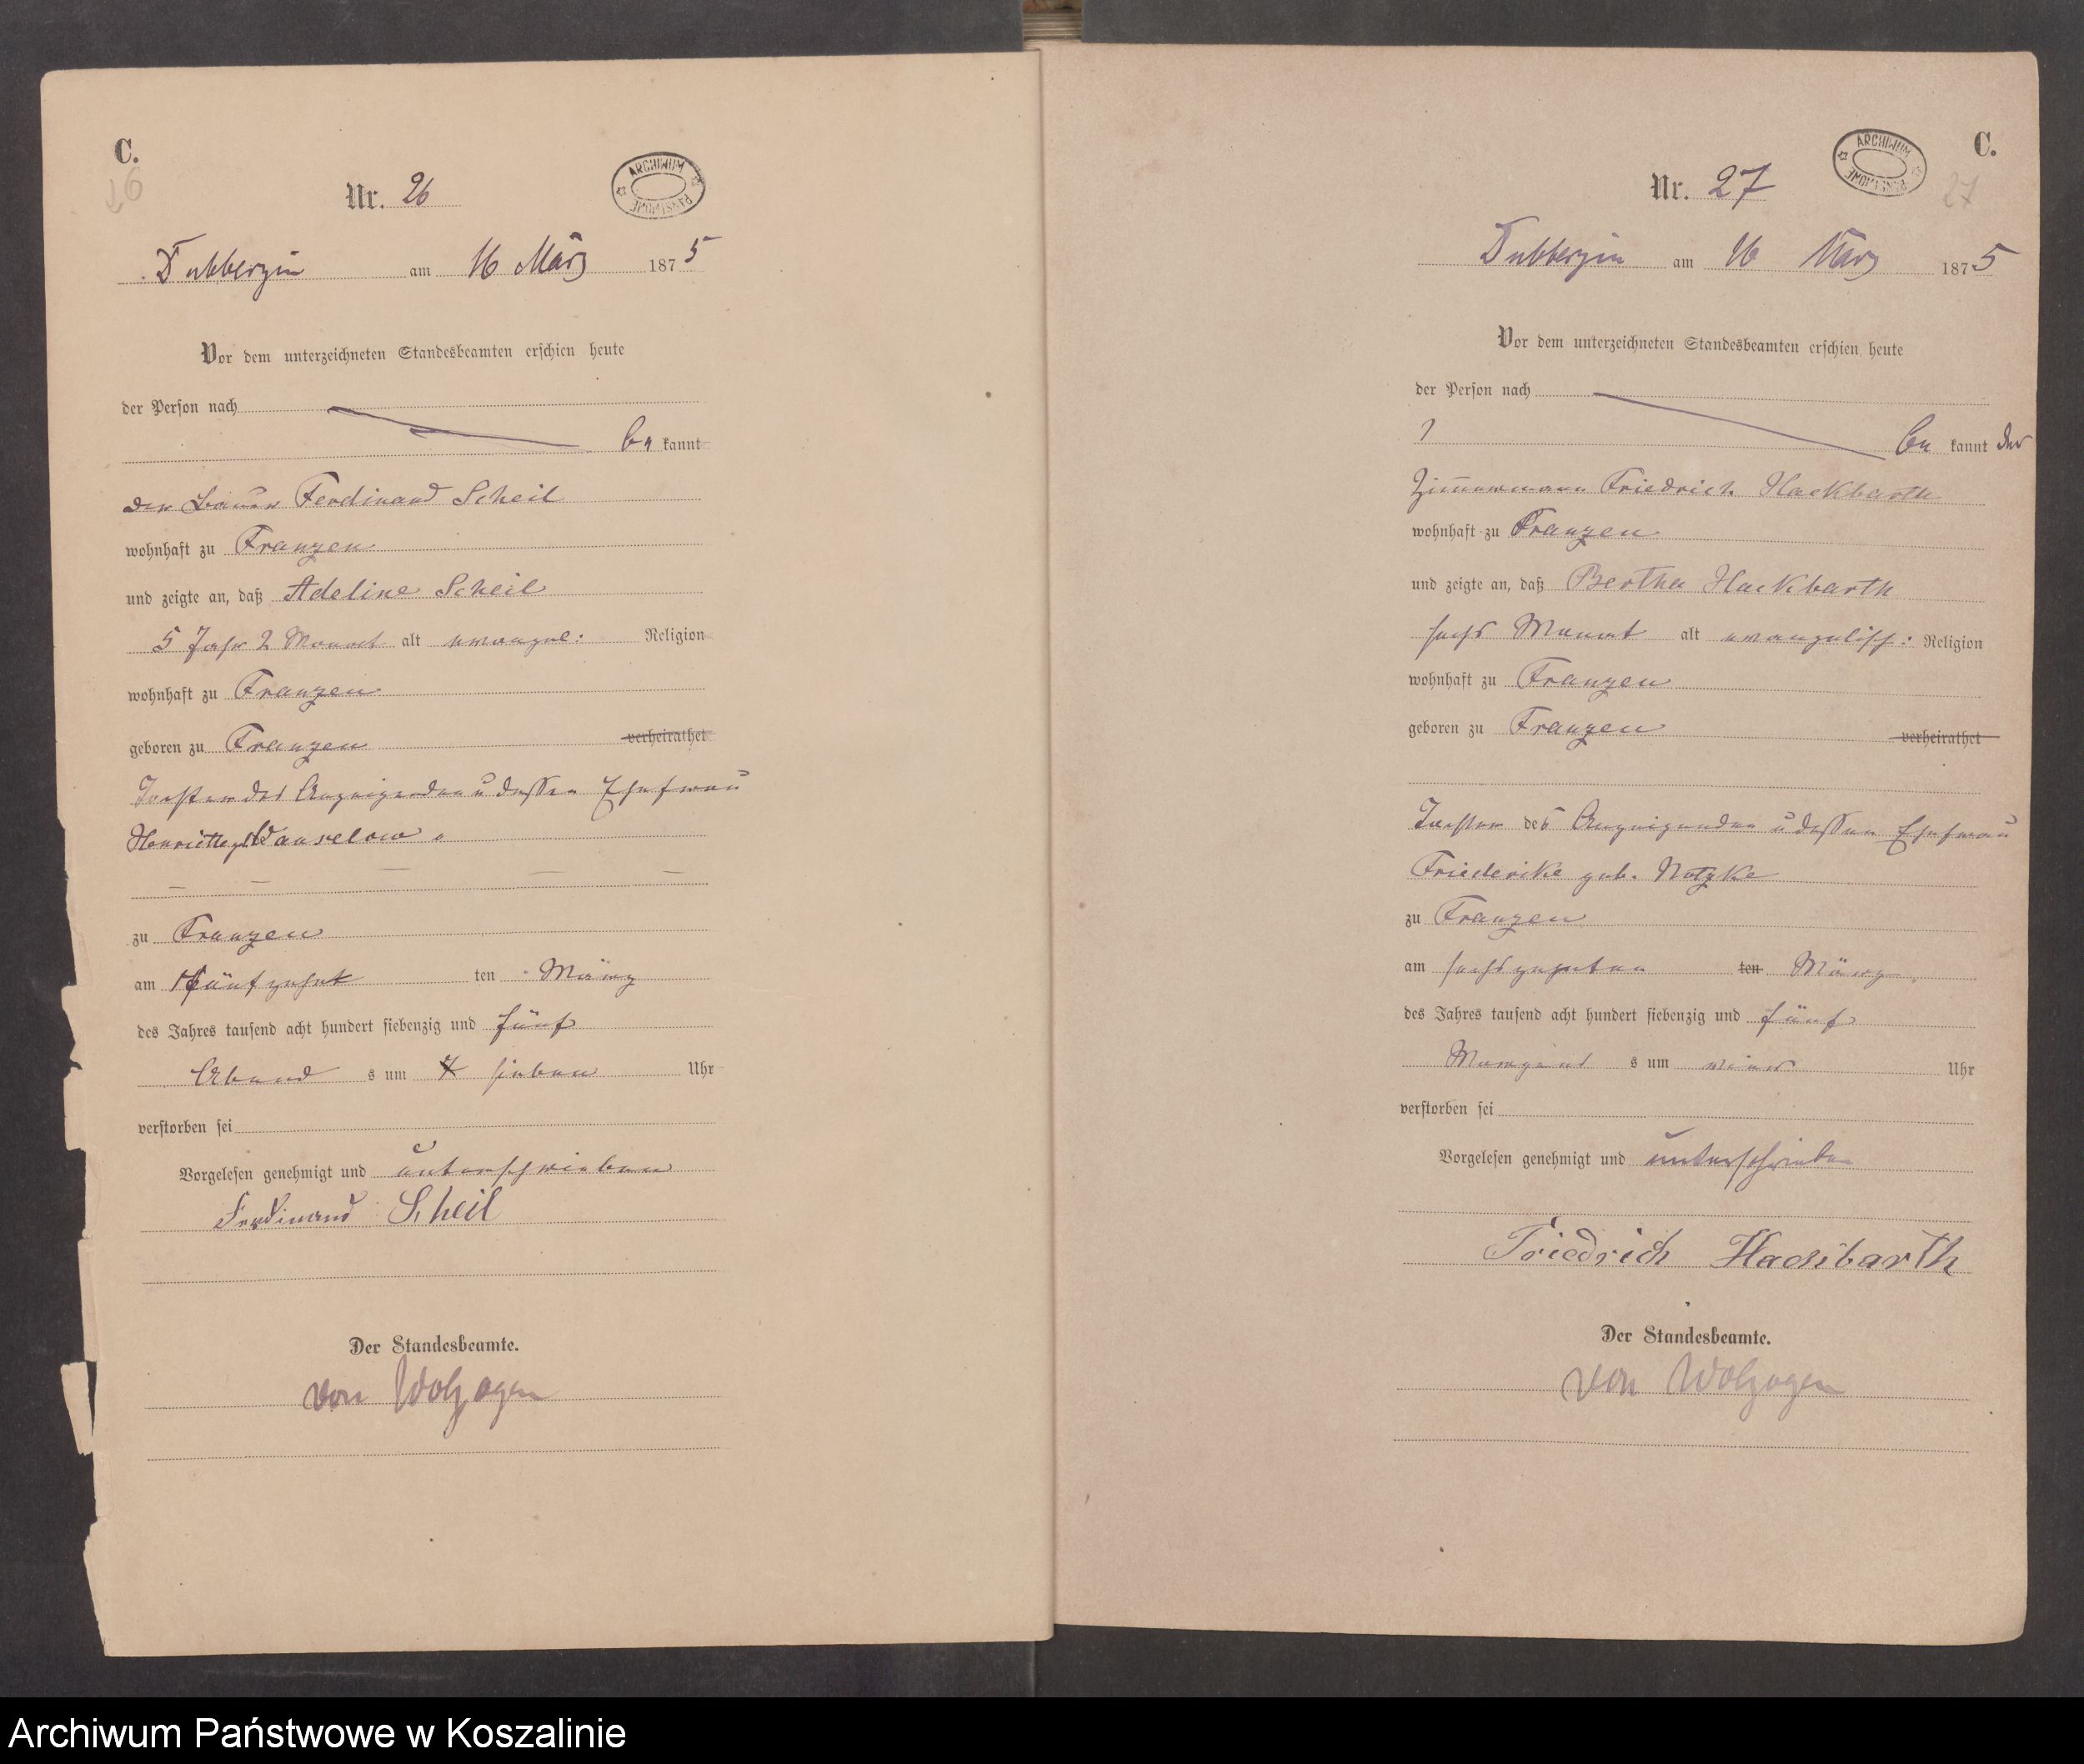 C.
26
Nr. 26
ARCHIWUM PAŃSTWOWE
Dubberzin am 16 März 1875
Vor dem unterzeichneten Standesbeamten erschien heute
der Person nach
be kannt
der Bauer Ferdinand Scheil
wohnhaft zu Franzen
und zeigte an, daß Adeline Scheil
5 Jahr 2 Monat alt evangel: Religion
wohnhaft zu Franzen
geboren zu Franzen verheirathet
Tochter des Anzeigenden u dessen Ehefrau
Henriette
zu Franzen
am fünfzehnt ten März
des Jahres tausend acht hundert siebenzig und fünf
Abend s um sieben Uhr
verstorben sei
Vorgelesen genehmigt und unterschrieben
Ferdinand Scheil
Der Standesbeamte.
von Wolzogen
C.
27
Nr. 27
ARCHIWUM PAŃSTWOWE
Dubberzin am 16 März 1875
Vor dem unterzeichneten Standesbeamten erschien heute
der Person nach
be kannt der
Zimmermann Friedrich Hackbarth
wohnhaft zu Franzen
und zeigte an, daß Bertha Hackbarth
sechs Monat alt evangelisch: Religion
wohnhaft zu Franzen
geboren zu Franzen verheirathet
Tochter des Anzeigenden u dessen Ehefrau
Friederike geb. Notzke
zu Franzen
am sechszehnten ten März
des Jahres tausend acht hundert siebenzig und fünf
Morgens s um vier Uhr
verstorben sei
Vorgelesen genehmigt und unterschrieben
Friedrich Hackbarth
Der Standesbeamte.
von Wolzogen
Archiwum Państwowe w Koszalinie